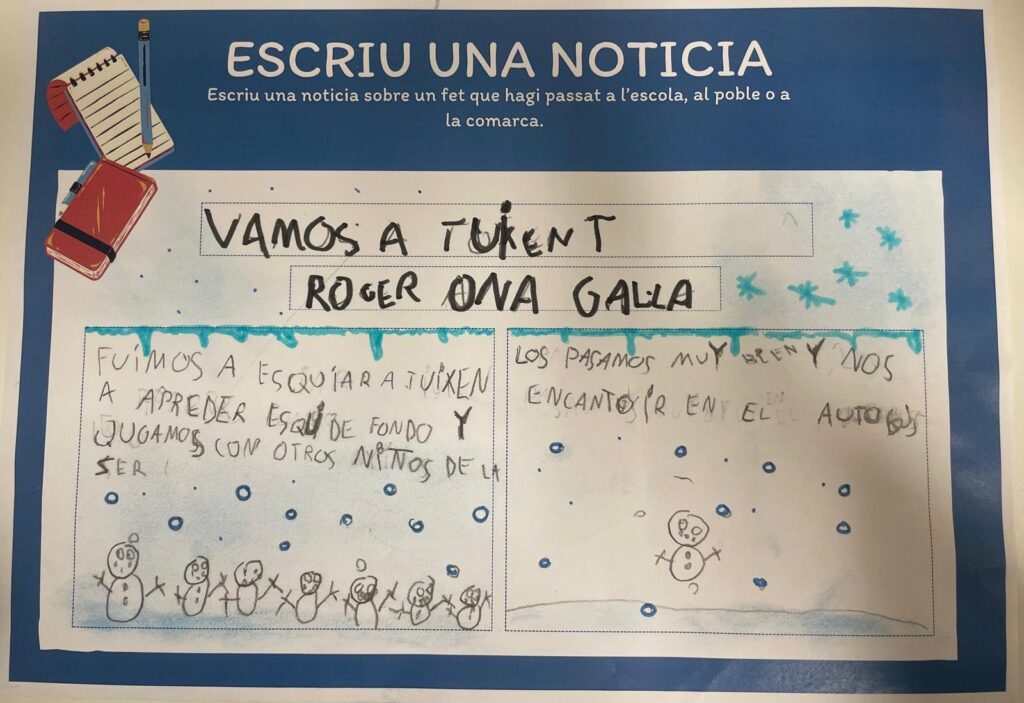 ESCRIU UNA NOTICIA
Escriu una noticia sobre un fet que hagi passat a l'escola, al poble o a
la comarca.
VAMOS A TUIXENT
ROGER ONA GAL·LA
FUIMOS A ESQUIAR A TUIXEN
A APREDER ESQUÍ DE FONDO Y
JUGAMOS CON OTROS NIÑOS DE LA
SER
LOS PASAMOS MUY BIEN Y NOS
ENCANTO IR EN EL AUTOBUS